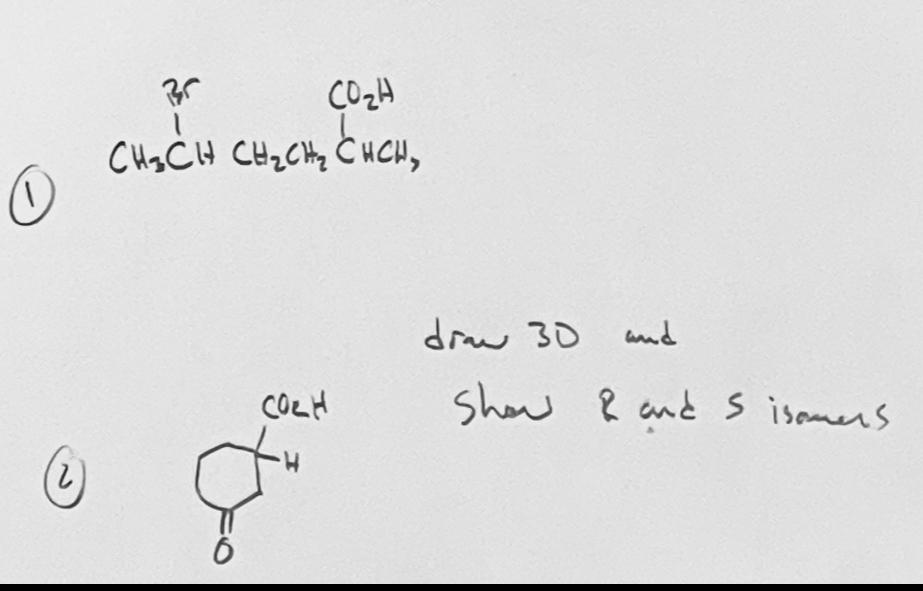 Br CO₂H
CH₃CH CH₂CH₂ CHCH₃
①
draw 3D and
show R and S isomers
CO₂H
H
②
O